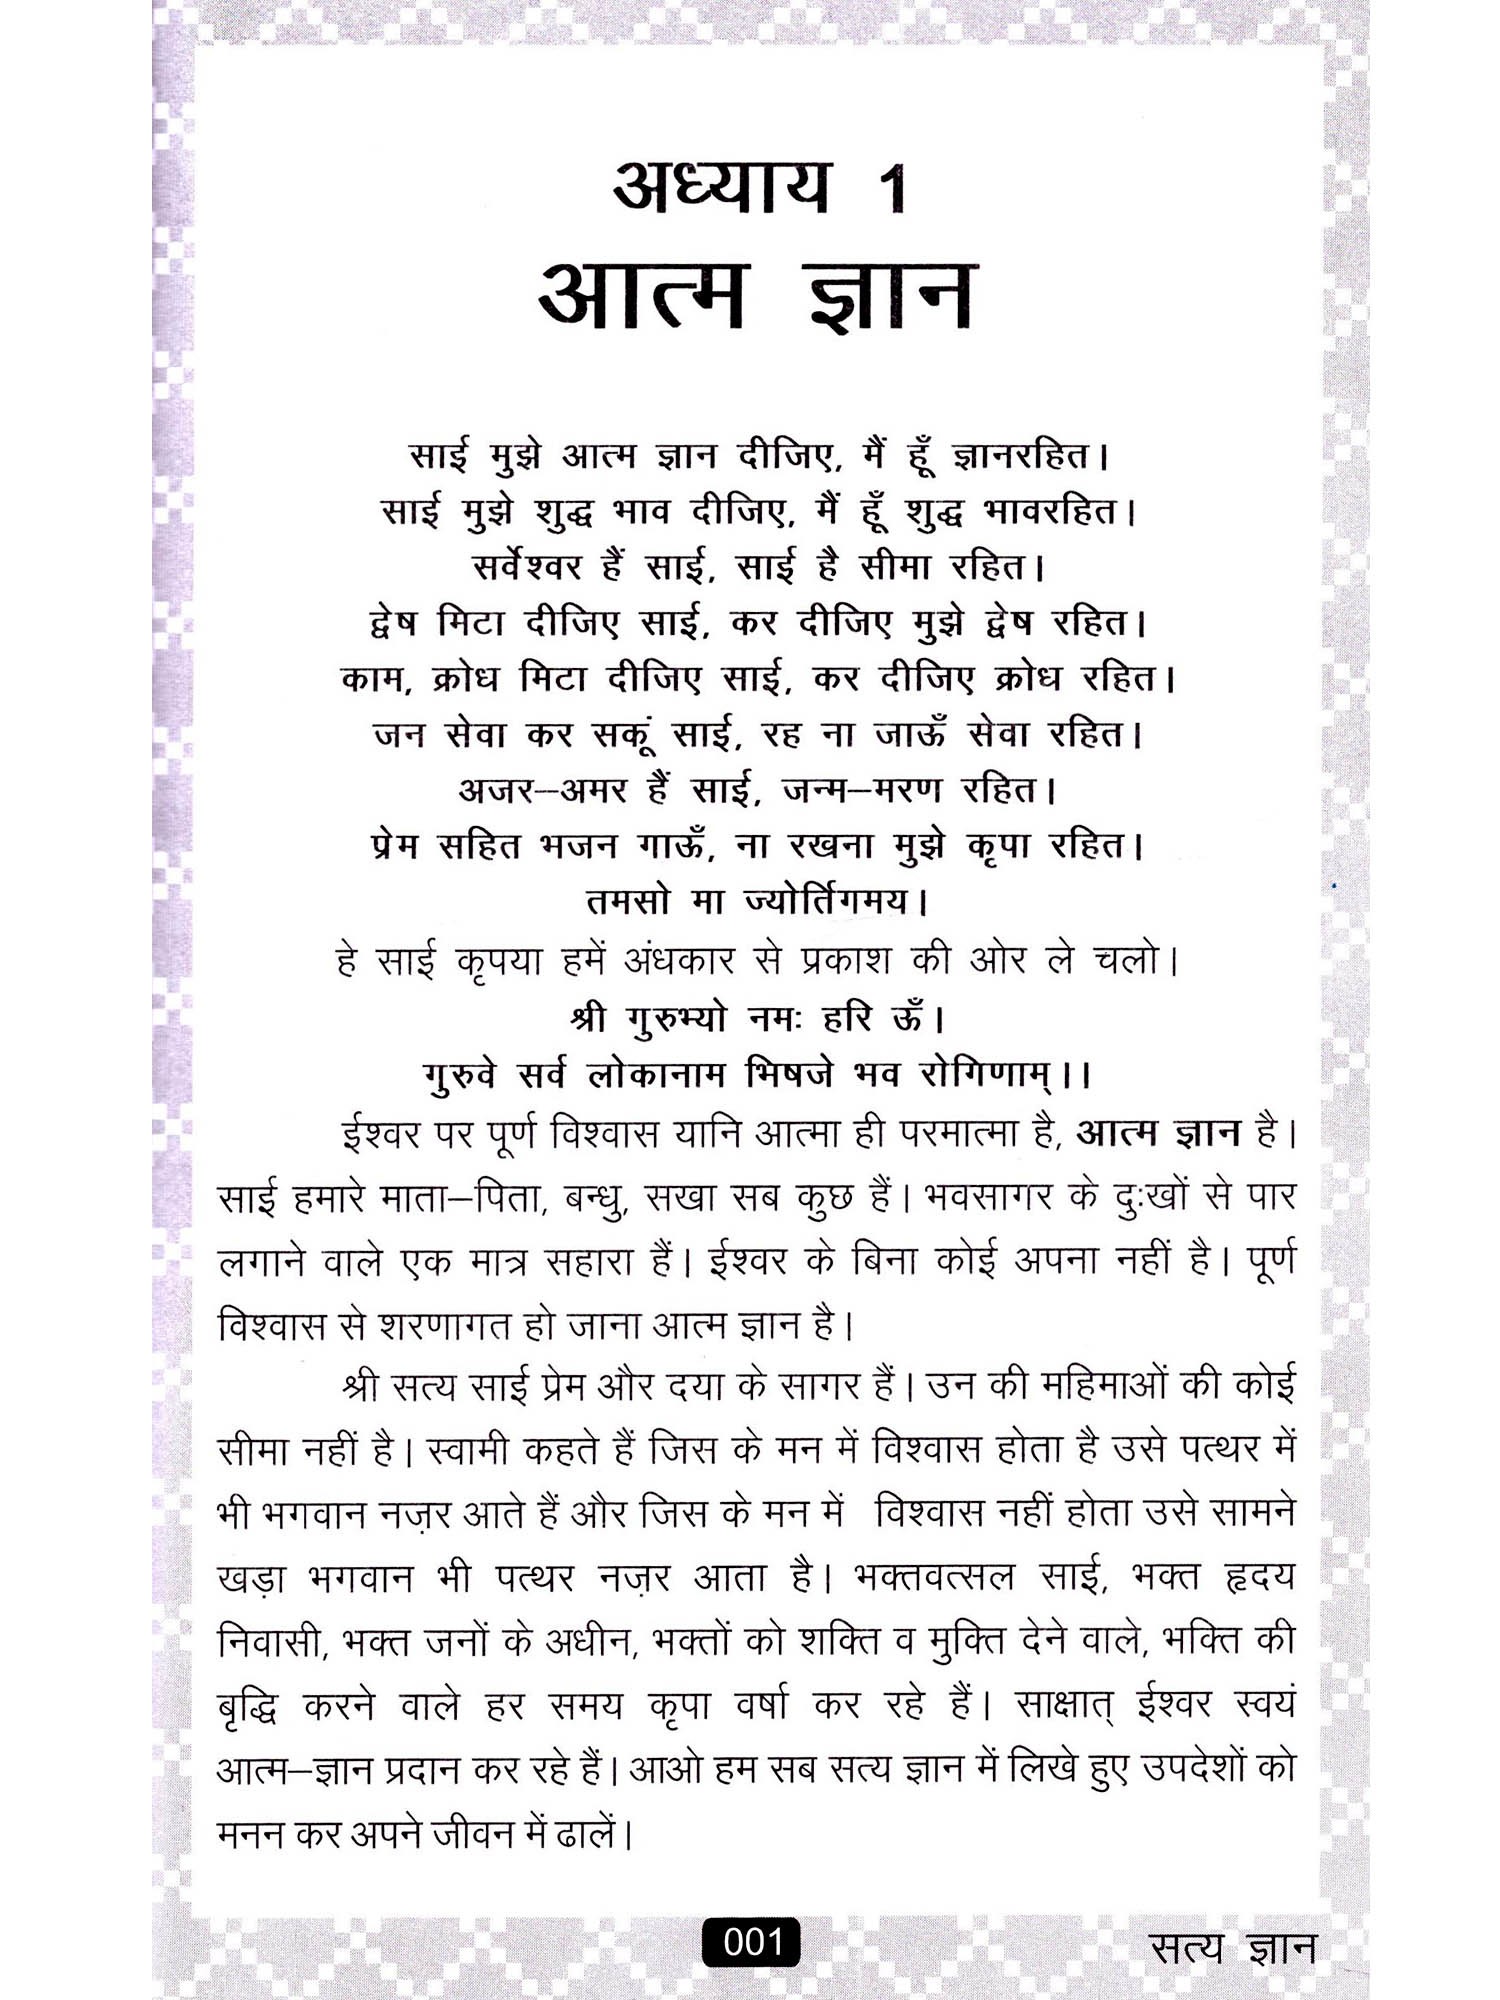 अध्याय 1
आत्म ज्ञान
साई मुझे आत्म ज्ञान दीजिए, मैं हूँ ज्ञानरहित।
साई मुझे शुद्ध भाव दीजिए, मैं हूँ शुद्ध भावरहित।
सर्वेश्वर हैं साई, साई है सीमा रहित।
द्वेष मिटा दीजिए साई, कर दीजिए मुझे द्वेष रहित।
काम, क्रोध मिटा दीजिए साई, कर दीजिए क्रोध रहित।
जन सेवा कर सकूं साई, रह ना जाऊँ सेवा रहित।
अजर–अमर हैं साई, जन्म–मरण रहित।
प्रेम सहित भजन गाऊँ, ना रखना मुझे कृपा रहित।
तमसो मा ज्योर्तिगमय।
हे साई कृपया हमें अंधकार से प्रकाश की ओर ले चलो।
श्री गुरुभ्यो नमः हरि ऊँ।
गुरुवे सर्व लोकानाम भिषजे भव रोगिणाम्।।
ईश्वर पर पूर्ण विश्वास यानि आत्मा ही परमात्मा है, आत्म ज्ञान है।
साई हमारे माता–पिता, बन्धु, सखा सब कुछ हैं। भवसागर के दुःखों से पार
लगाने वाले एक मात्र सहारा हैं। ईश्वर के बिना कोई अपना नहीं है। पूर्ण
विश्वास से शरणागत हो जाना आत्म ज्ञान है।
श्री सत्य साई प्रेम और दया के सागर हैं। उन की महिमाओं की कोई
सीमा नहीं है। स्वामी कहते हैं जिस के मन में विश्वास होता है उसे पत्थर में
भी भगवान नज़र आते हैं और जिस के मन में विश्वास नहीं होता उसे सामने
खड़ा भगवान भी पत्थर नज़र आता है। भक्तवत्सल साई, भक्त हृदय
निवासी, भक्त जनों के अधीन, भक्तों को शक्ति व मुक्ति देने वाले, भक्ति की
बृद्धि करने वाले हर समय कृपा वर्षा कर रहे हैं। साक्षात् ईश्वर स्वयं
आत्म–ज्ञान प्रदान कर रहे हैं। आओ हम सब सत्य ज्ञान में लिखे हुए उपदेशों को
मनन कर अपने जीवन में ढालें।
001
सत्य ज्ञान